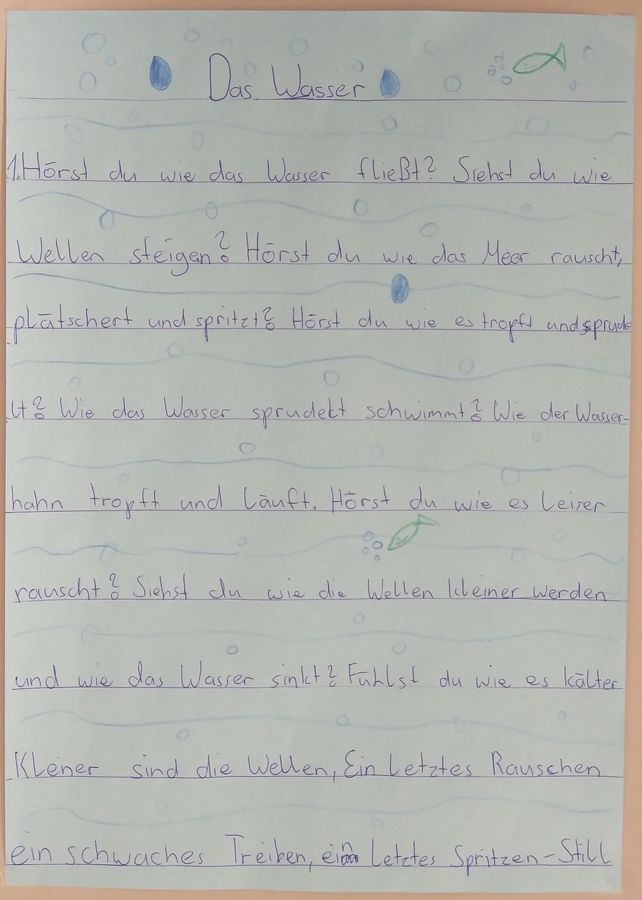 Das Wasser
1. Hörst du wie das Wasser fließt? Siehst du wie
Wellen steigen? Hörst du wie das Meer rauscht,
plätschert und spritzt? Hörst du wie es tropft und sprude
lt? Wie das Wasser sprudelt schwimmt? Wie der Wasser-
hahn tropft und läuft. Hörst du wie es leiser
rauscht? Siehst du wie die Wellen kleiner werden
und wie das Wasser sinkt? Fühlst du wie es kälter
Kleiner sind die Wellen, Ein letztes Rauschen
ein schwaches Treiben, ein letztes Spritzen-Still